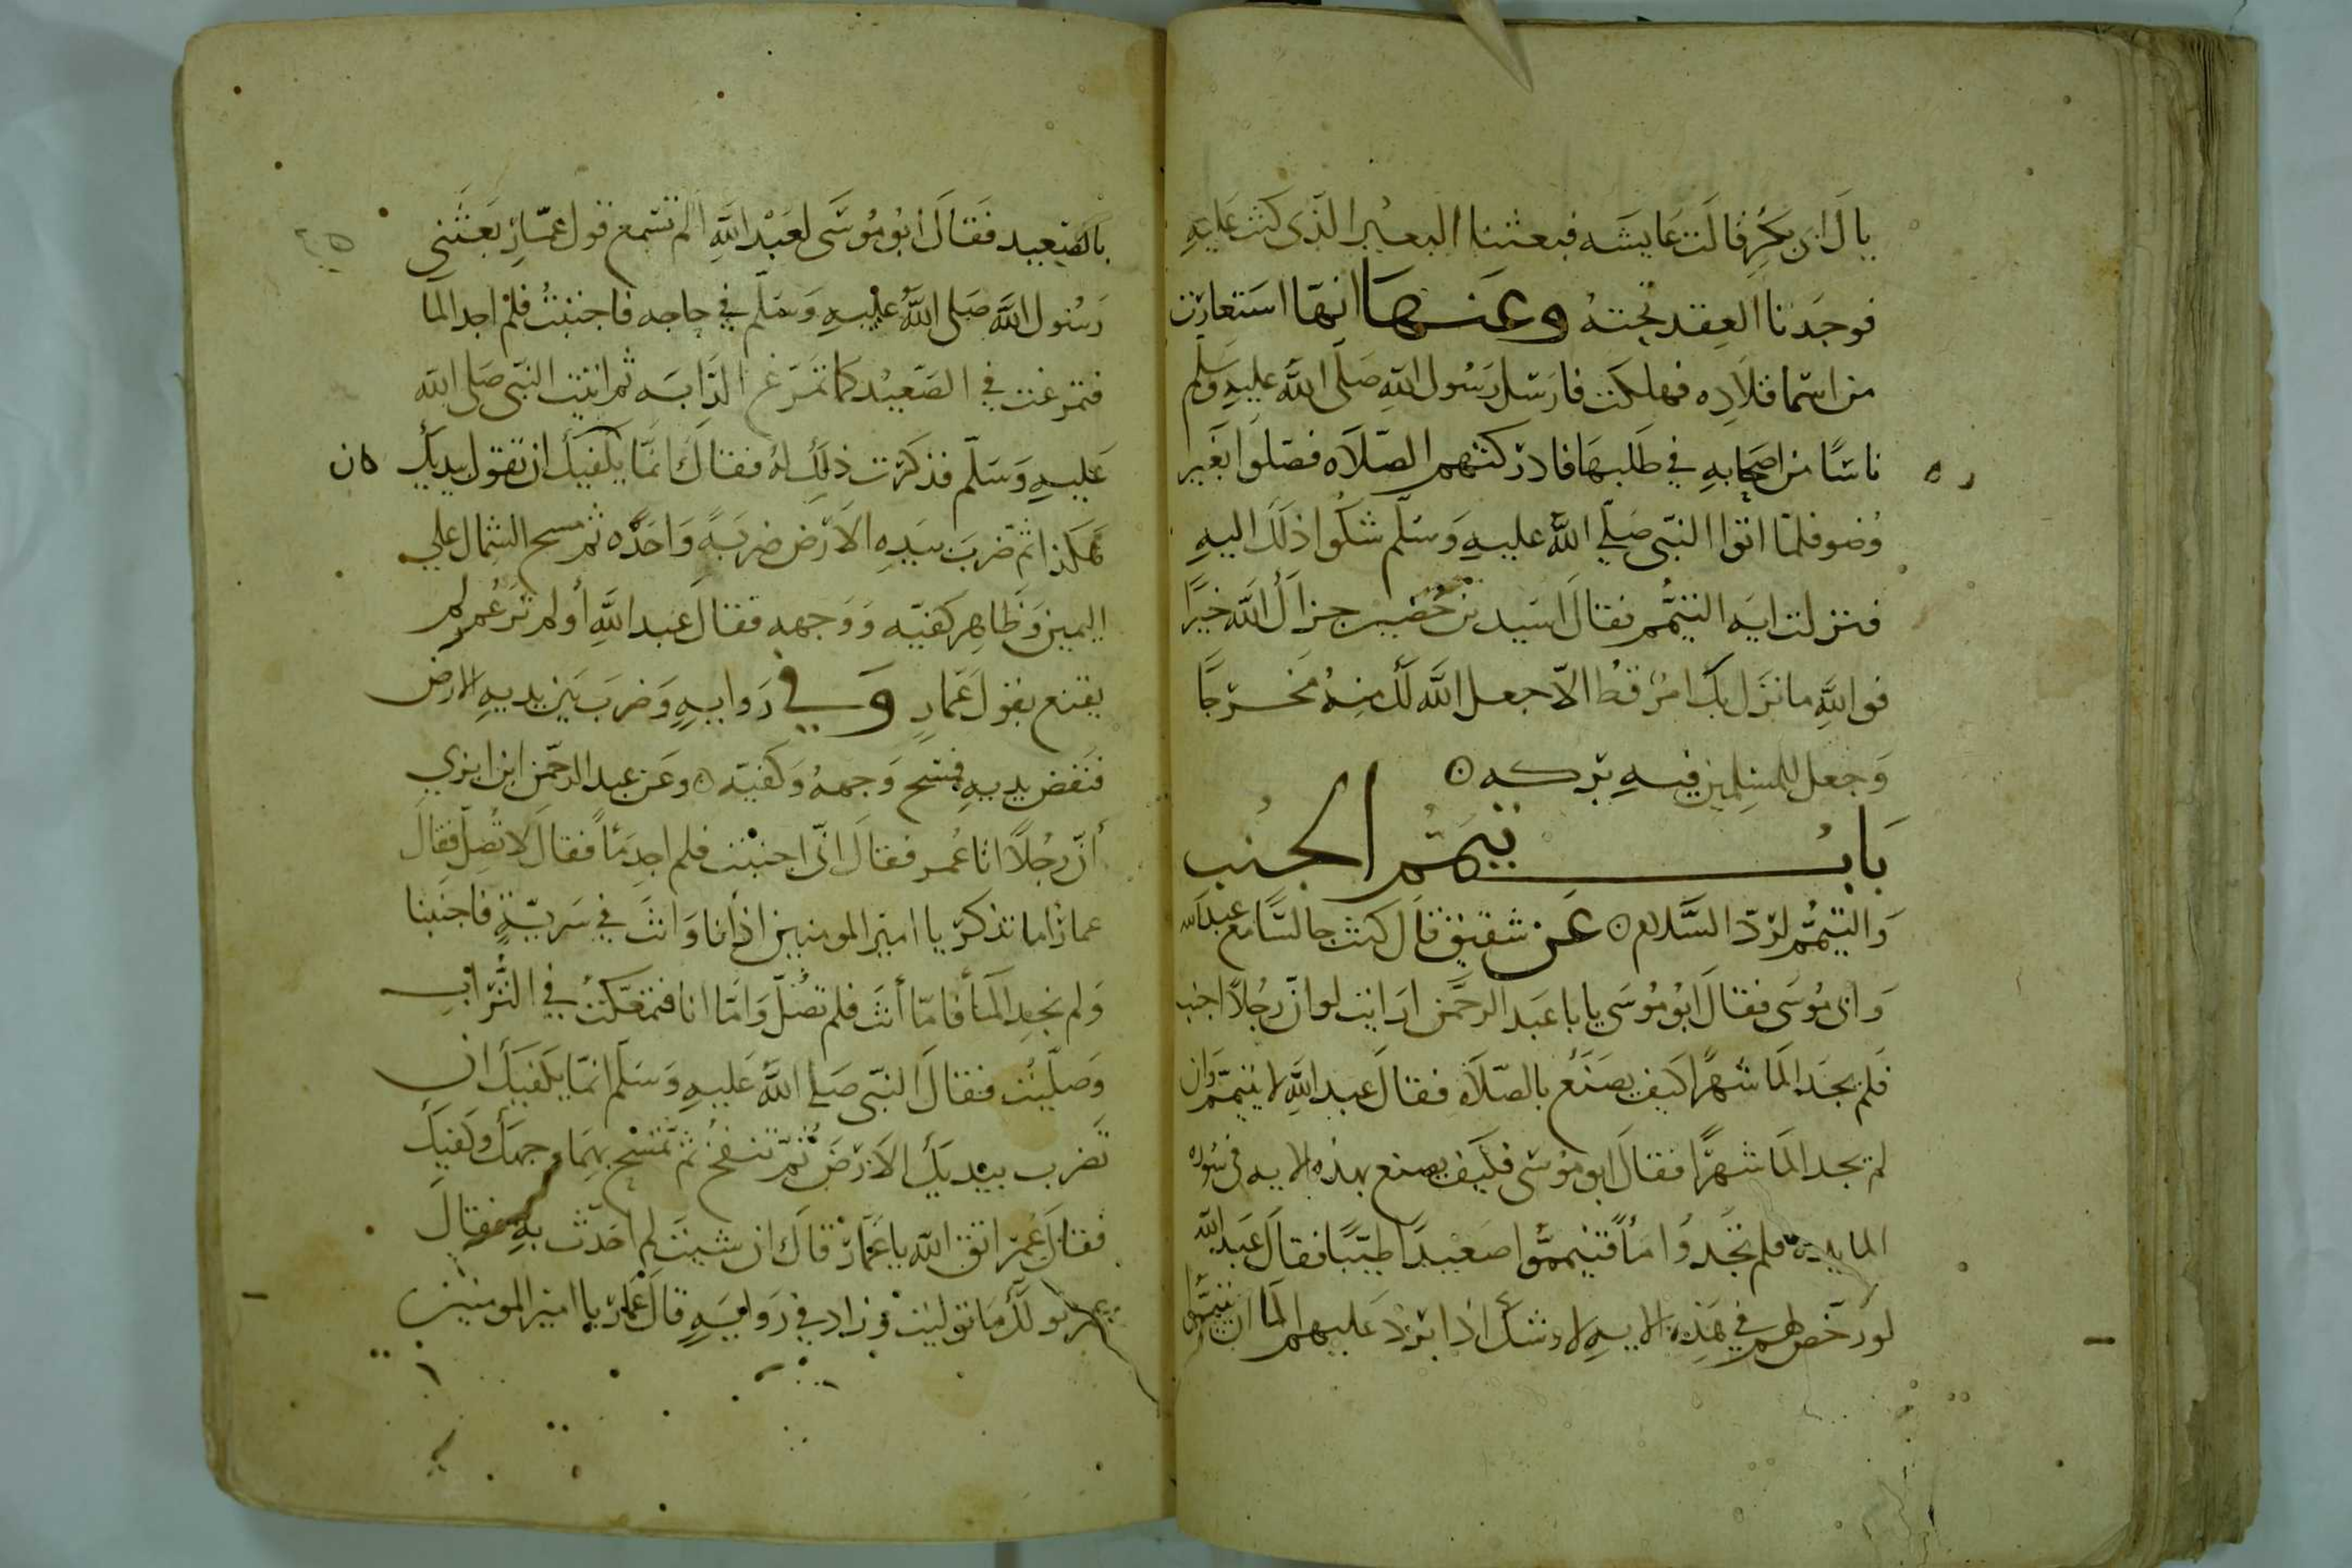 يال ابى بكر قالت عايشه فبعثنا البعير الذى كنت عليه
فوجدنا العقد تحته وعنها انها استعارت
من اسما قلاده فهلكت فارسل رسول الله صلى الله عليه وسلم
ناسًا من اصحابه في طلبها فادركتهم الصلاه فصلوا بغير
وضو فلما اتوا النبى صلى الله عليه وسلم شكوا ذلك اليه
فنزلت ايه التيمم فقال اسيد بن حضير جزاك الله خيرًا
فوالله ما نزل بك امرٌ قط الا جعل الله لك منه مخرجًا
وجعل للمسلمين فيه بركه
باب تيمم الجنب
والتيمم لرد السلام عن شقيق قال كنت جالسًا مع عبد الله
وابى موسى فقال ابو موسى يابا عبد الرحمن ارايت لو ان رجلاً اجنب
فلم يجد الما شهرًا كيف يصنع بالصلاه فقال عبد الله لا يتيمم وان
لم يجد الما شهرًا فقال ابو موسى فكيف يصنع بهذه الايه فى سوره
المايده فلم تجدوا مأً فتيمموا صعيدًا طيبًا فقال عبد الله
لو رخص لهم في هذه الايه لاوشك اذا برد عليهم الما ان يتيمموا
بالصعيد فقال ابو موسى لعبد الله الم تسمع قول عمار بعثني
رسول الله صلى الله عليه وسلم في حاجه فاجنبت فلم اجد الما
فتمرغت في الصعيد كما تمرغ الدابه ثم اتيت النبى صلى الله
عليه وسلم فذكرت ذلك له فقال انما يكفيك ان تقول بيديك كان
هكذا ثم ضرب بيده الارض ضربةً واحدًه ثم مسح الشمال على
اليمين وظاهر كفيه ووجهه فقال عبد الله أولم تر عمر لم
يقنع بقول عمار وفي روايه وضرب بين يديه الارض
فنفض يديه فمسح وجهه وكفيه وعن عبد الرحمن ابن ابزي
أن رجلاً اتا عمر فقال انى اجنبت فلم اجد مأً فقال لا تصل فقال
عمار اما تذكر يا امير المومنين اذ أنا وانت في سريةٍ فاجنبنا
ولم نجد المأ فأما أنت فلم تصل واما انا فتمعكت في التراب
وصليت فقال النبى صلى الله عليه وسلم انما يكفيك ان
تضرب بيديك الارض ثم تنفخ ثم تمسح بهما وجهك وكفيك
فقال عمر اتق الله يا عمار قال ان شيت لم احدث به فقال
عمر نولك ما توليت وزاد في روايهٍ قال عمار يا امير المومنين